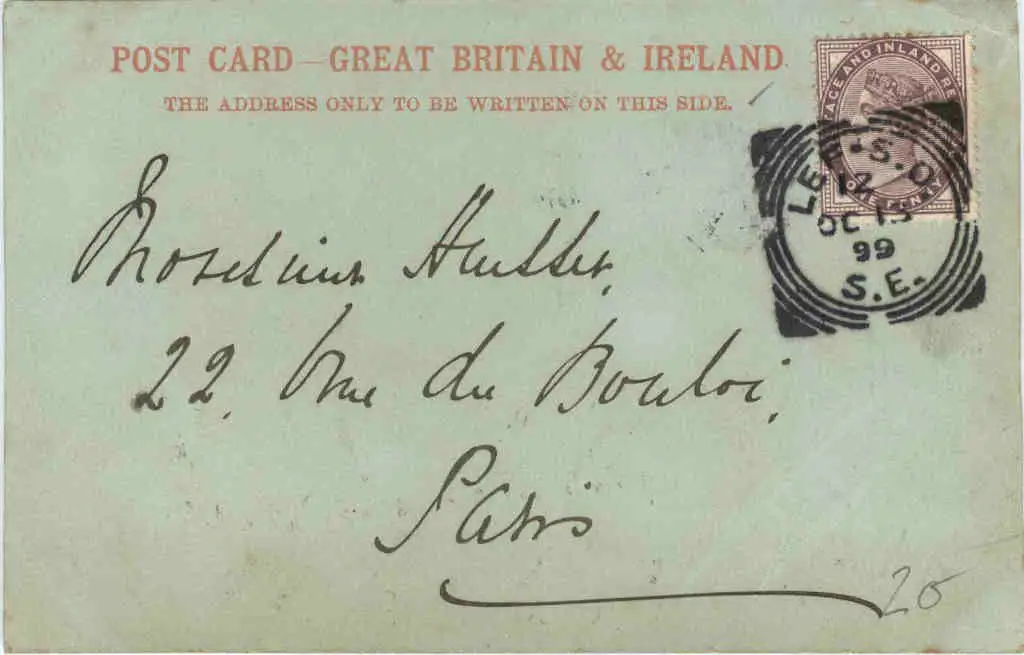 POST CARD—GREAT BRITAIN & IRELAND
THE ADDRESS ONLY TO BE WRITTEN ON THIS SIDE.
AGE AND INLAND RE
NE PENNY
LEE. S.O.
12
OC 13
99
S.E.
Monsieur
22, Rue du Bouloi,
Paris
20